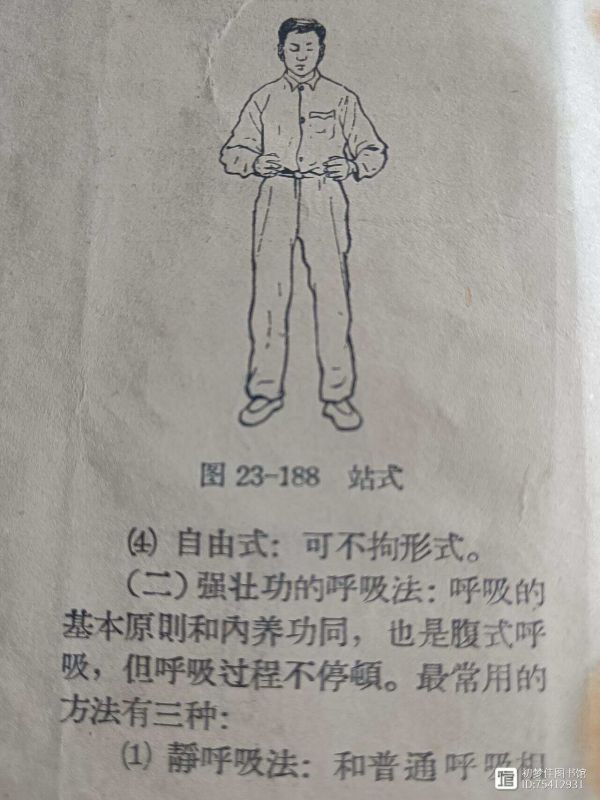 图 23-188 站式
⑷ 自由式：可不拘形式。
（二）强壮功的呼吸法：呼吸的
基本原則和內养功同，也是腹式呼
吸，但呼吸过程不停頓。最常用的
方法有三种：
⑴ 靜呼吸法：和普通呼吸相
初梦仟图书馆
ID:75412931